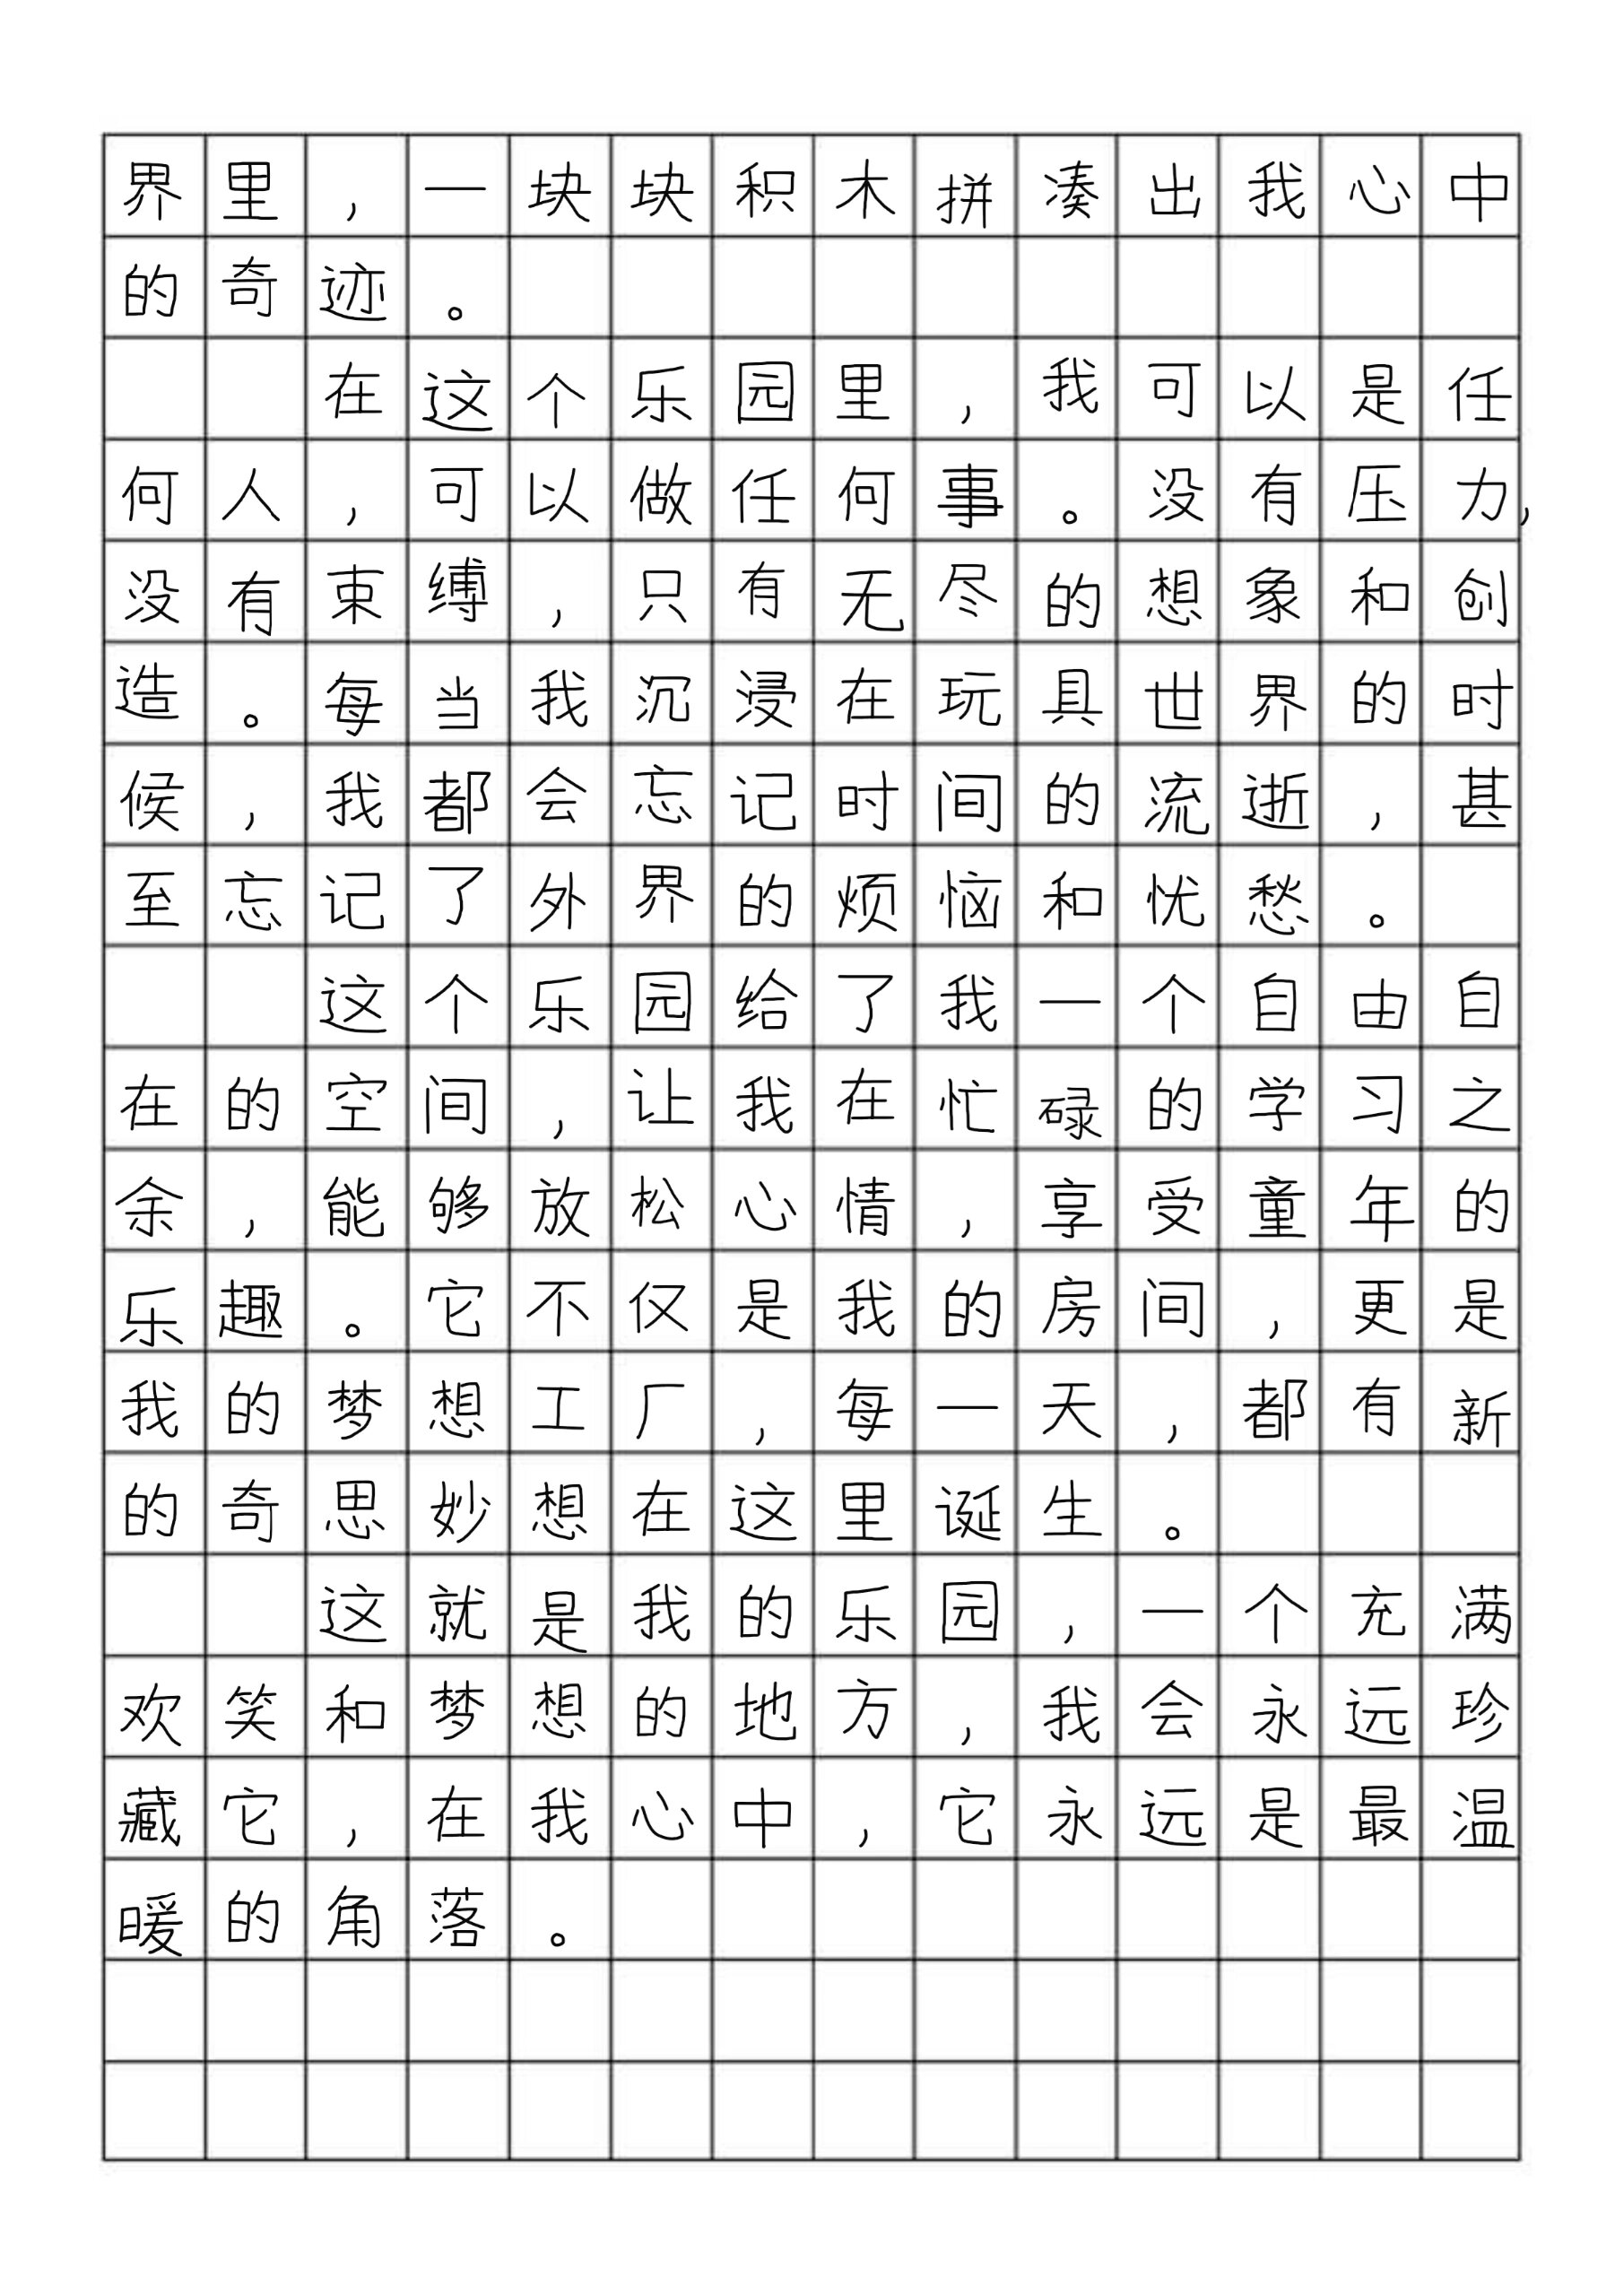 界里，一块块积木拼凑出我心中
的奇迹。
在这个乐园里，我可以是任
何人，可以做任何事。没有压力，
没有束缚，只有无尽的想象和创
造。每当我沉浸在玩具世界的时
候，我都会忘记时间的流逝，甚
至忘记了外界的烦恼和忧愁。
这个乐园给了我一个自由自
在的空间，让我在忙碌的学习之
余，能够放松心情，享受童年的
乐趣。它不仅是我的房间，更是
我的梦想工厂，每一天，都有新
的奇思妙想在这里诞生。
这就是我的乐园，一个充满
欢笑和梦想的地方，我会永远珍
藏它，在我心中，它永远是最温
暖的角落。